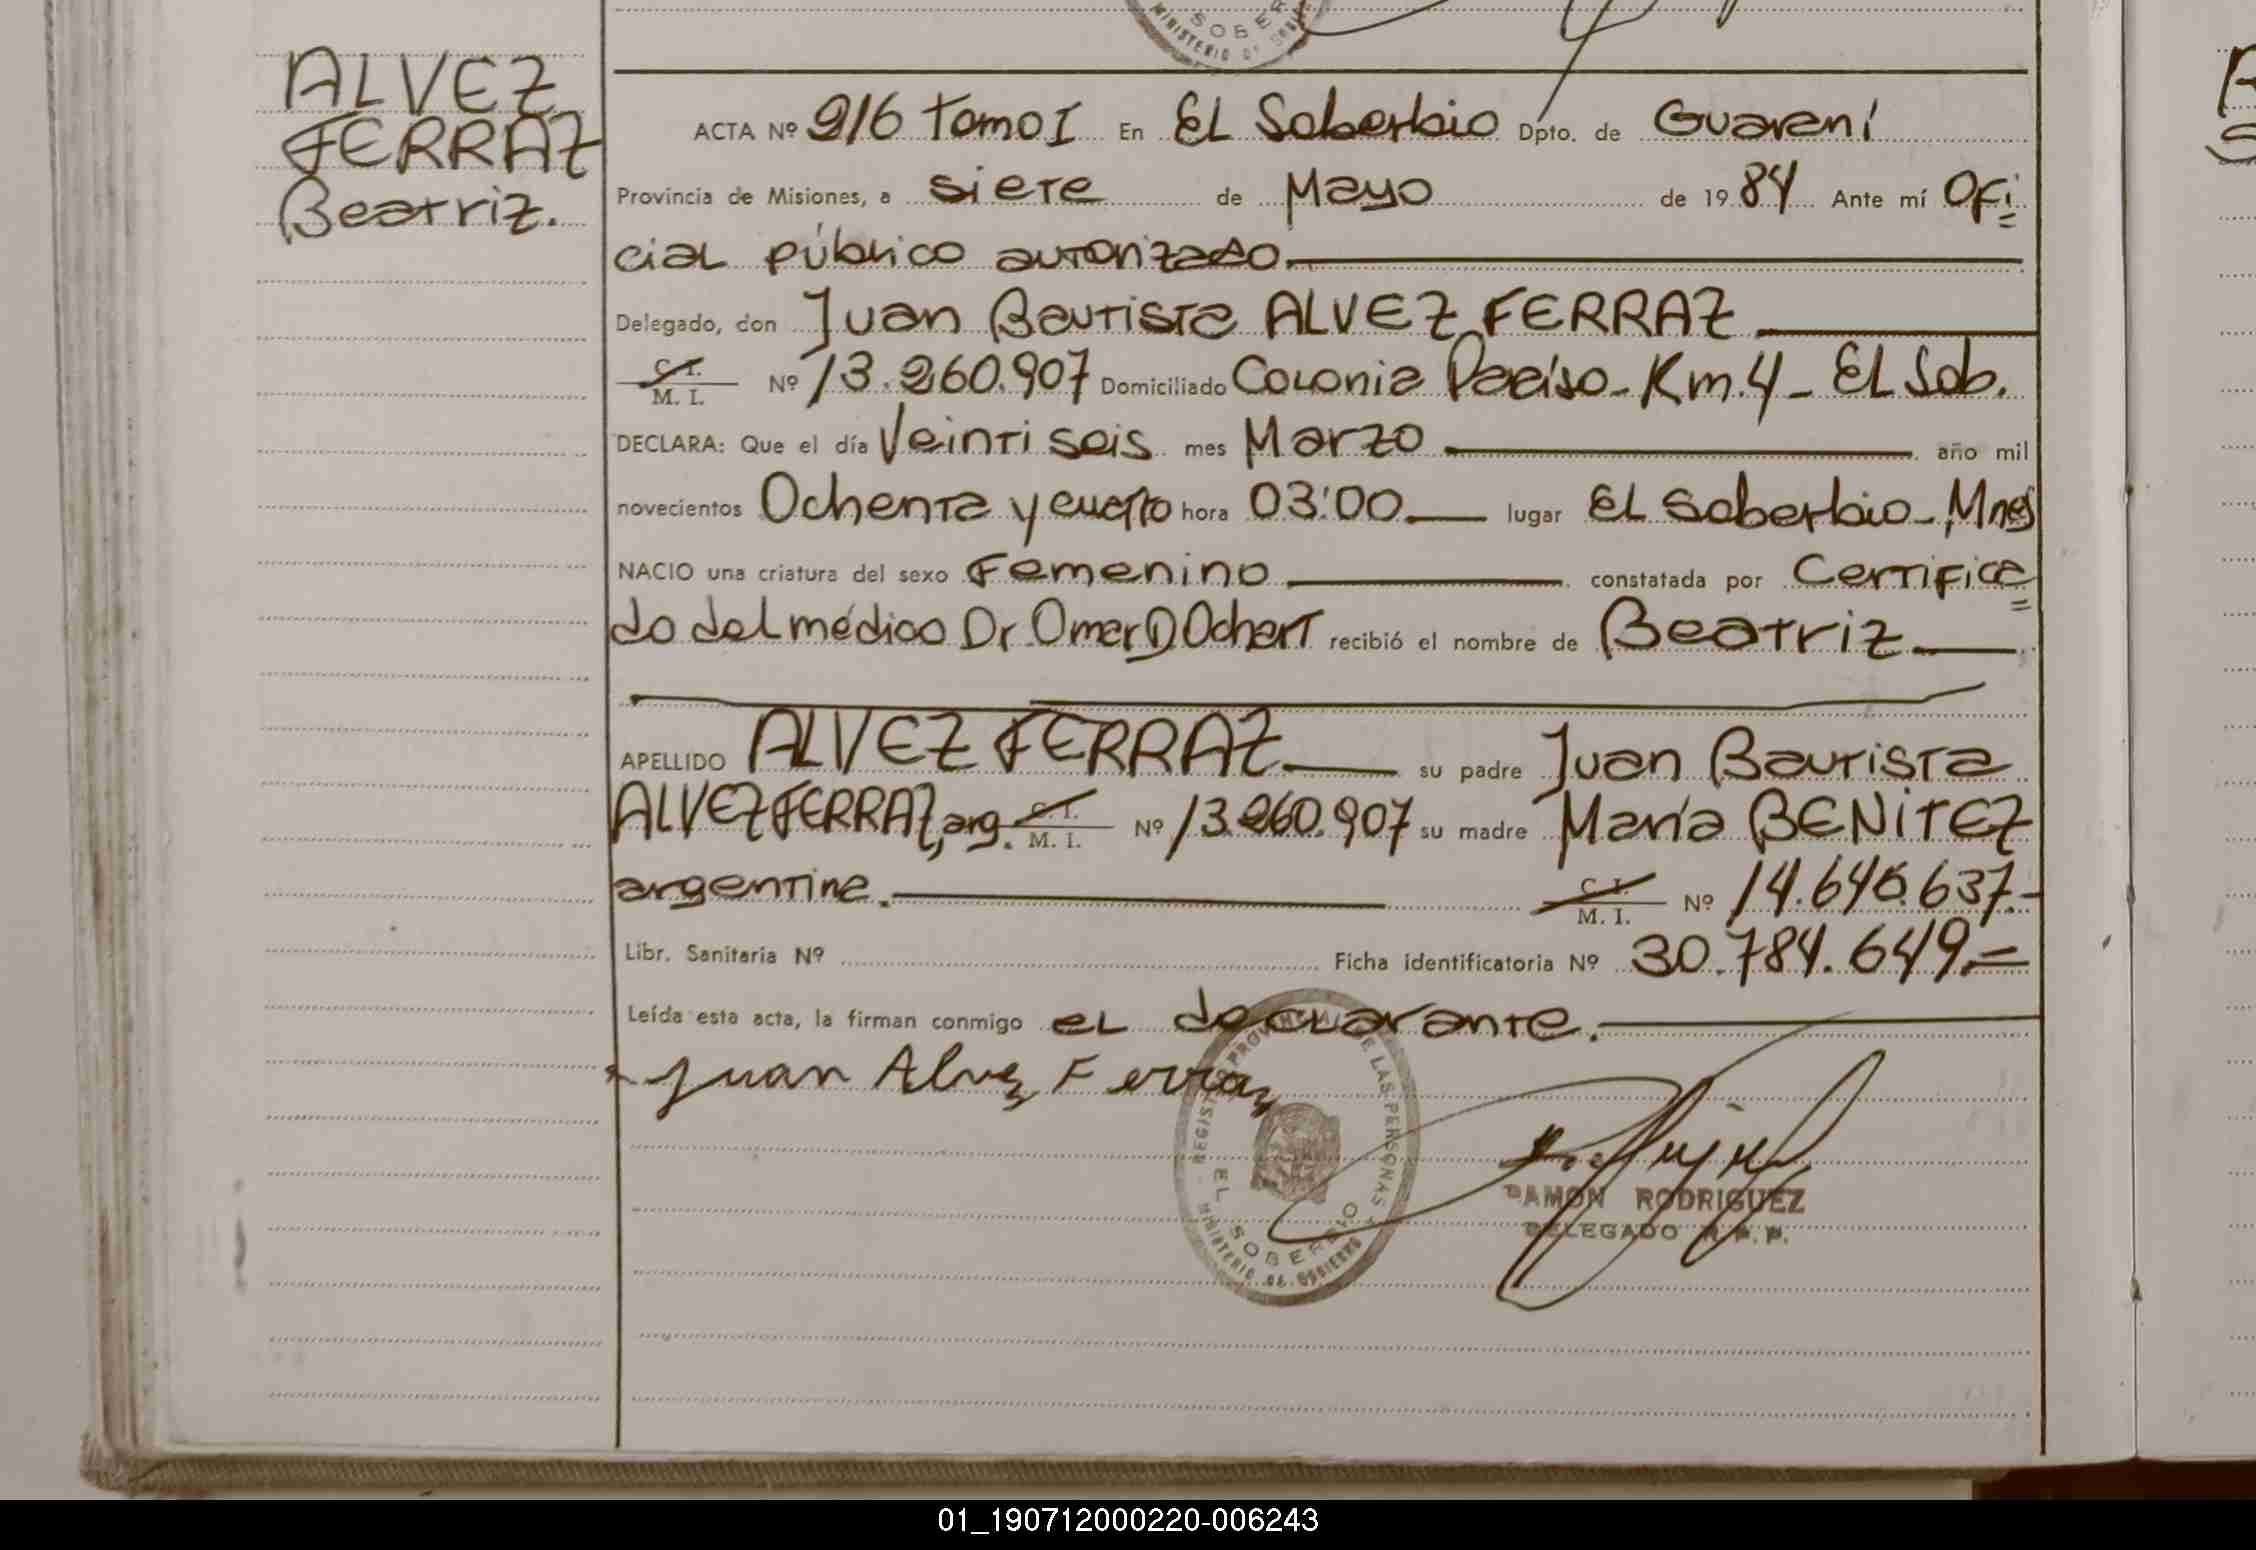 ALVEZ
FERRAZ
Beatriz.
ACTA Nº 216 Tomo I En EL Soberbio Dpto. de Guaraní
Provincia de Misiones, a siete de Mayo de 1984 Ante mí Ofi
cial público autorizado.
Delegado, don Juan Bautista ALVEZ FERRAZ
C. I.
M. I. Nº 13.260.907 Domiciliado Colonia Paraíso - Km. 4 - EL Sob.
DECLARA: Que el día Veinti seis mes Marzo año mil
novecientos Ochenta y cuatro hora 03:00 lugar EL Soberbio - Mnes
NACIO una criatura del sexo Femenino constatada por Certifica
do del médico Dr. Omar D Ochart recibió el nombre de Beatriz
APELLIDO ALVEZ FERRAZ su padre Juan Bautista
ALVEZ FERRAZ, arg. C. I. M. I. Nº 13.260.907 su madre María BENITEZ
argentina. C. I. M. I. Nº 14.640.637.-
Libr. Sanitaria Nº Ficha identificatoria Nº 30.784.649.=
Leída esta acta, la firman conmigo el declarante.
Juan Alvez Ferraz
REGISTRO PROVINCIAL DE LAS PERSONAS
EL SOBERBIO
MINISTERIO DE GOBIERNO
RAMON RODRIGUEZ
DELEGADO R.P.P.
01_190712000220-006243